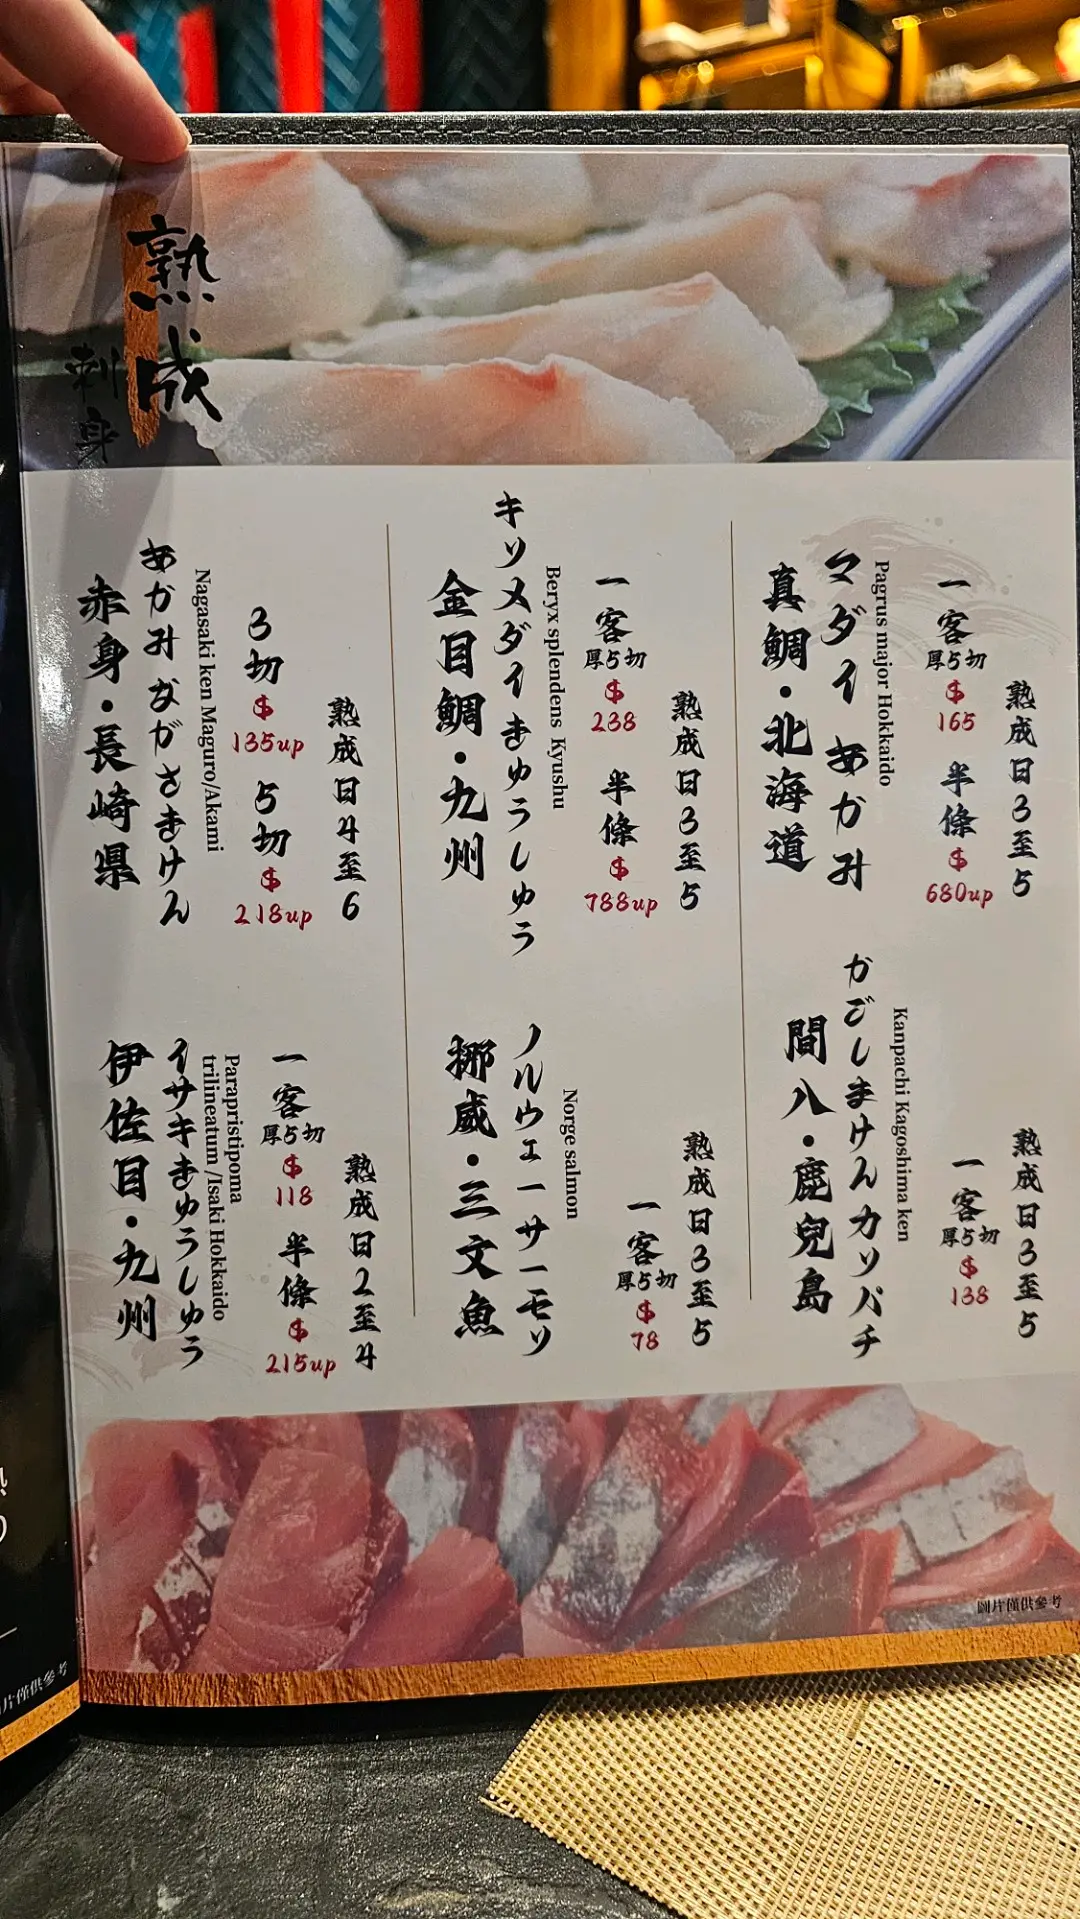 熟成
刺身
あかみ ながさきけん
赤身・長崎県
Nagasaki ken Maguro/Akami
3切
$
135up
5切
$
218up
熟成日4至6
キソメダイ きゅうしゅう
金目鯛・九州
Beryx splendens Kyushu
一客
厚5切
$
238
半條
$
788up
熟成日3至5
マダイ あかみ
真鯛・北海道
Pagrus major Hokkaido
一客
厚5切
$
165
半條
$
680up
熟成日3至5
イサキきゅうしゅう
伊佐目・九州
Parapristipoma
trilineatum /Isaki Hokkaido
一客
厚5切
$
118
半條
$
215up
熟成日2至4
ノルウェーサーモソ
挪威・三文魚
Norge salmon
一客
厚5切
$
78
熟成日3至5
かごしまけんカソパチ
間八・鹿兒島
Kanpachi Kagoshima ken
一客
厚5切
$
138
熟成日3至5
圖片僅供參考
片僅供參考